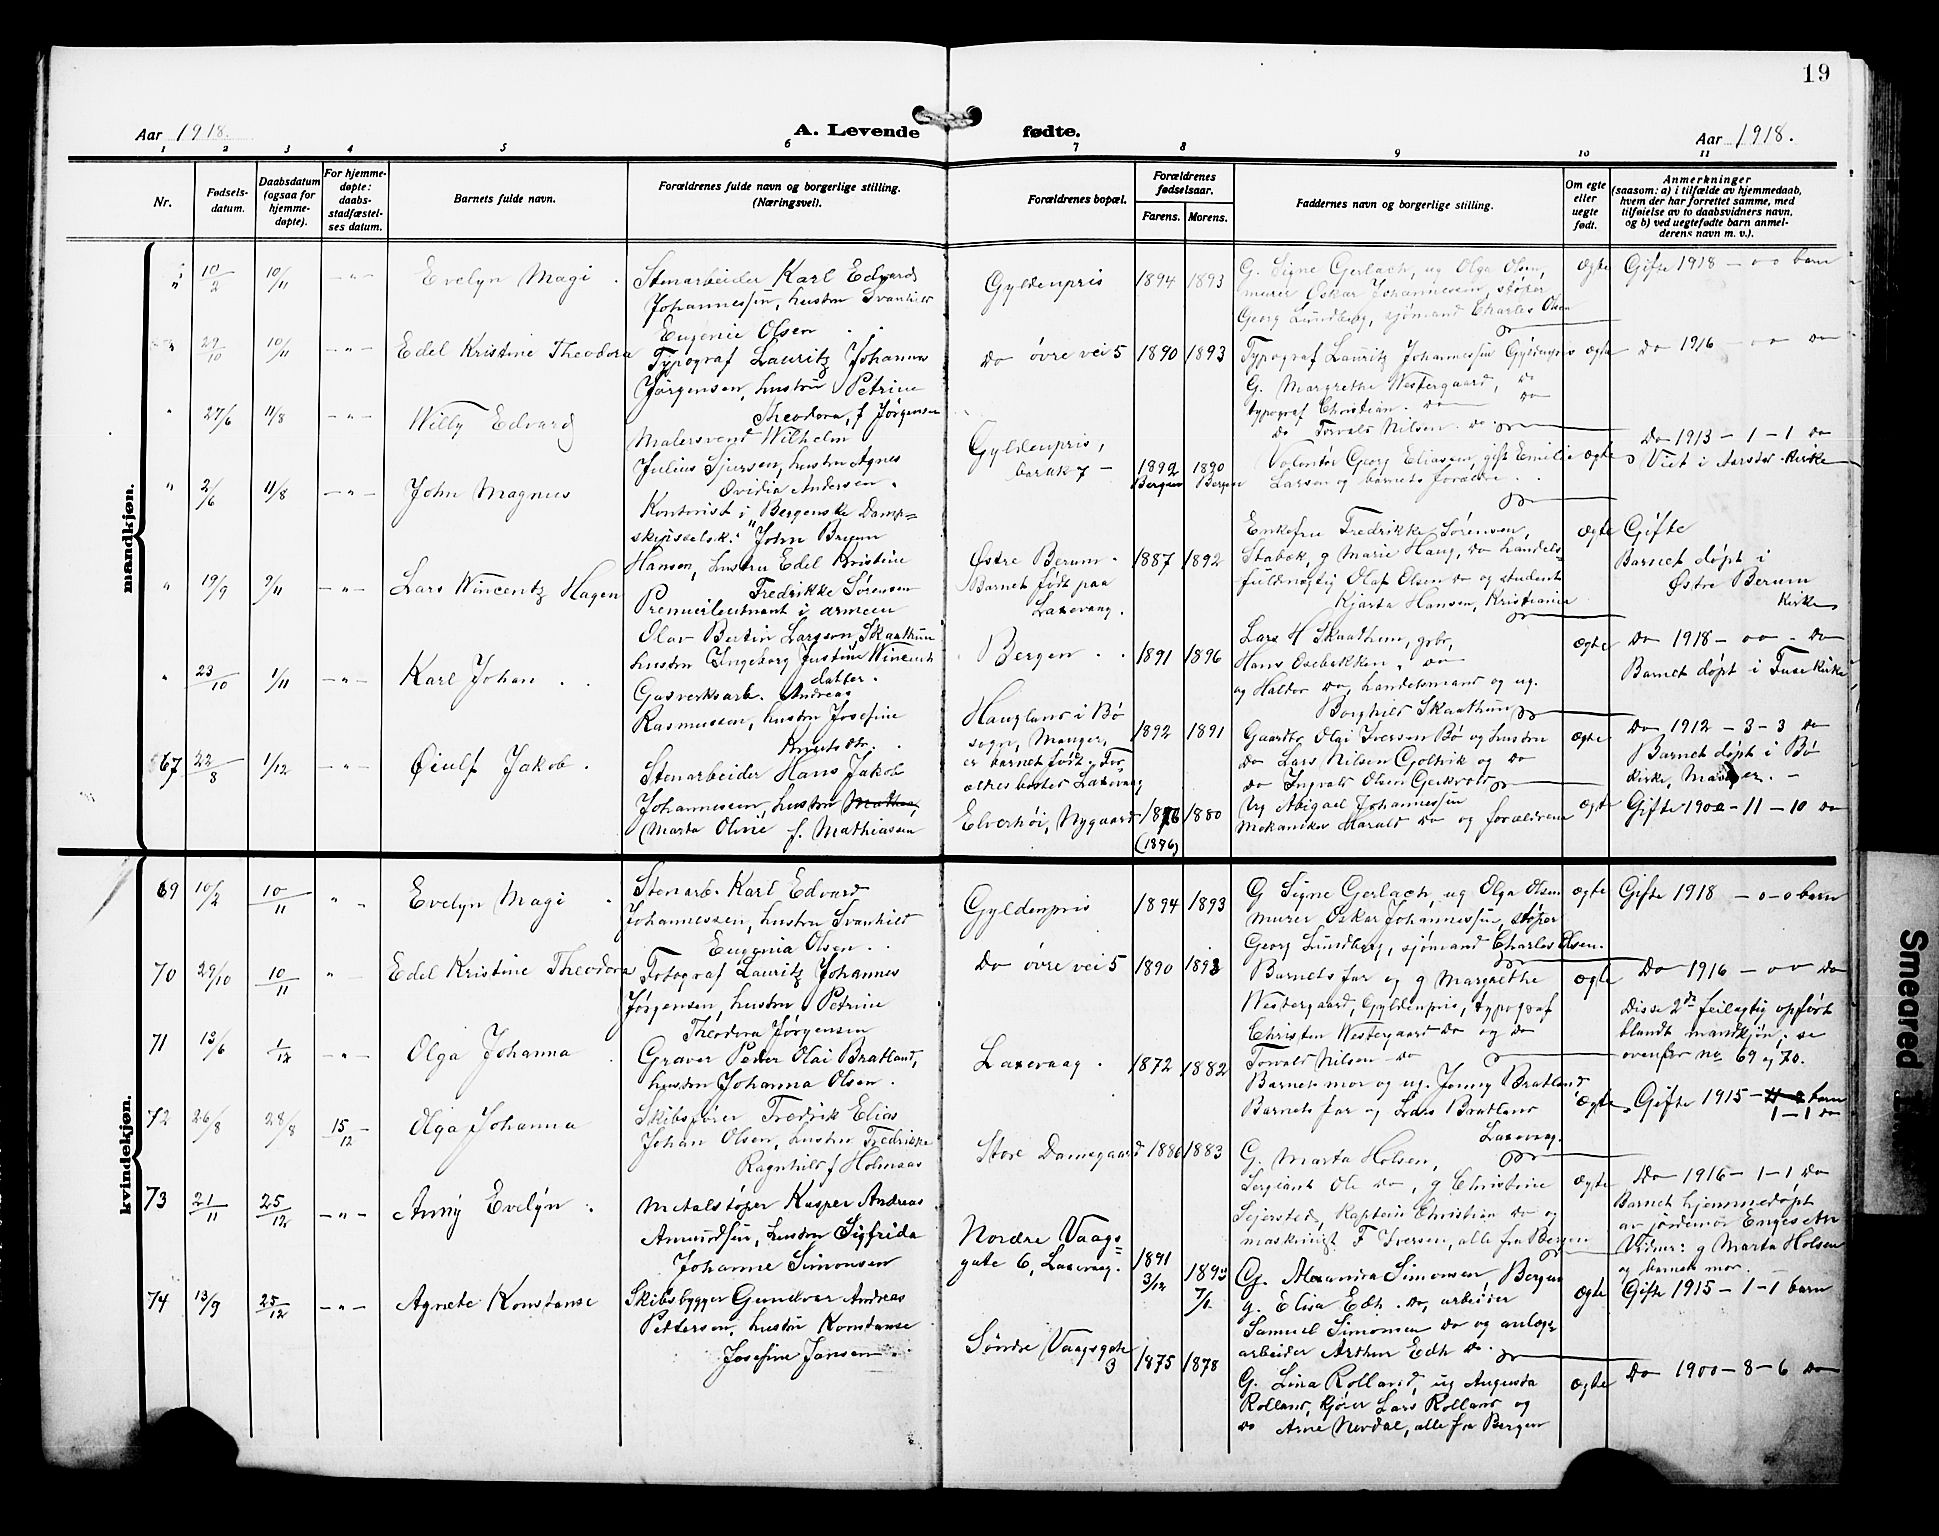 19
Aar 1918.
A. Levende fødte.
Aar 1918.
1 2 3 4 5 6 7 8 9 10 11
Nr.
Fødsels-
datum.
Daabsdatum
(ogsaa for
hjemme-
døpte).
For hjemme-
døpte:
daabs-
stadfæstel-
ses datum.
Barnets fulde navn.
Forældrenes fulde navn og borgerlige stilling.
(Næringsvei).
Forældrenes bopæl.
Forældrenes
fødselsaar.
Farens. Morens.
Faddernes navn og borgerlige stilling.
Om egte
eller
uegte
født.
Anmerkninger
(saasom: a) i tilfælde av hjemmedaab,
hvem der har forrettet samme, med
tilføielse av to daabsvidners navn,
og b) ved uegtefødte barn anmel-
derens navn m. v.).
mandkjøn.
10/2 10/11 -"- Evelyn Magi
Stenarbeider Karl Edvard
Johannessen, hustru Svanhild
Eugenie Olsen
Gyldenpris 1894 1893
G. Signe Gerlach, ug Olga Olsen,
murer Oskar Johannessen, støper
Georg Lundberg, sjømand Charles Olsen
ægte
Gifte 1918 - o o barn
29/10 10/11 -"- Edel Kristine Theodora
Typograf Lauritz Johannes
Jørgensen, hustru Petrine
Theodora, f Jørgensen
Do øvre vei 5 1890 1893
Typograf Lauritz Johannessen Gyldenpris
G. Margrethe Westergaard, Do
typograf Christian Do Do
Do Torvald Nilsen Do
ægte
Do 1916 - o o Do
27/6 11/8 -"- Willy Edvard
Malersvend Wilhelm
Julius Sjursen, hustru Agnes
Ovidia Andersen
Gyldenpris,
barak 7 -
1892 1890
Bergen Bergen
Volontør Georg Eliassen, gift Emilie
Larsen og barnets forældre
ægte
Do 1913 - 1 - 1 Do
Viet i Aarstad Kirke
2/6 11/8 -"- John Magnus
Kontorist i Bergenske Damp=
skipsselsk. John Bruun
Hansen, hustru Edel Kristine
Fredrikke Sørensen
Østre Berum
Barnet født paa
Laxevaag.
1887 1892
Enkefru Fredrikke Sørensen,
Stabæk, g Marie Haug, Do handels=
fuldmægtig Olaf Olsen Do og student
Kjarta Hansen, Kristiania
ægte
Gifte
Barnet døpt i
Østre Berum
Kirke
19/9 9/11 -"- Lars Wincentz Hagen
Premierleutnant i armeen
Olav Bertin Larsson Skaathun
hustru Ingeborg Justine Wincents
datter.
Bergen 1891 1896
Lars H Skaathun, gbr,
Hans Oxebekken, Do
og Haldor Do, handelsmand og ug.
Borghild Skaathun
ægte
Do 1918 - o o - Do
Barnet døpt i Fuse Kirke
23/10 1/11 -"- Karl Johan
Gasverksarb. Andreas
Rasmussen, hustru Josefine
Knutsdtr.
Haugland i Bø
sogn, Manger,
er barnet født. For
ældres bosted Laxevaag
1892 1891
Gaardbr Olai Iversen Bø og hustru
Do Lars Nilsen Goltvik og Do
Do Ingvald Olsen
ægte
Do 1912 - 3 - 3 Do
Barnet døpt i Bø
Kirke, Manger. -
67 22/8 1/12 -"- Øiulf Jakob
Stenarbeider Hans Jakob
Johannessen, hustru
Marta Olivie f. Mathiassen
Elverhøi, Nygaard 1876 1880
(1876)
Ug Abigael Johannessen
Mekaniker Harald Do og forældrene
ægte
Gifte 1900 - 11 - 10 Do
kvindekjøn.
69 10/2 10/11 " - Evelyn Magi
Stenarb. Karl Edvard
Johannessen, hustru Svanhild
Eugenia Olsen
Gyldenpris 1894 1893
G Signe Gerlach, ug Olga Olsen
murer Oskar Johannessen, støper
Georg Lundberg, sjømand Charles Olsen.
ægte
Gifte 1918 - o - o barn
70 29/10 10/11 " Edel Kristine Theodora
Fotograf Lauritz Johannes
Jørgensen, hustru Petrine
Theodora Jørgensen
Do øvre vei 5 1890 1893
Barnets far og g Margrethe
Westergaard, Gyldenpris, typograf
Christen Westergaard Do og Do
Torvald Nilsen Do
ægte
Do 1916 - o o Do
Disse 2de feilagtig opført
blandt mandkjøn, se
ovenfor no 69 og 70.
71 13/6 1/12 -"- Olga Johanna
Graver Peder Olai Bratland,
hustru Johanna Olsen.
Laxevaag. 1872 1882
Barnets mor og ug. Jenny Bratland
Barnets far og Lars Bratland
Laxevaag.
ægte
Gifte 1915 - barn
1 - 1 Do
72 26/8 28/8 15/12 Olga Johanna
Skibsfører Fredrik Elias
Johan Olsen, hustru Fredrikke
Ragnhild f Holmaas
Store Damsgaard 1886 1883
G. Marta Holsen,
Sergiant Ole Do, g Christine
Sejersted, Kaptein Christian Do og
maskinugt F Iversen, alle fra Bergen
ægte
Do 1916 - 1 - 1 Do
Barnet hjemmedøpt
av jordmor Engesæter
Vidner: g Marta Holsen
og barnets mor.
73 21/11 25/12 -"- Anny Evelyn
Metalstøper Kasper Andreas
Amundsen, hustru Sigfrida
Johanne Simonsen
Nordre Vaags=
gate 6, Laxevaag.
1891
3/12
G. Alexandra Simonsen, Bergen
g. Elisa Edh. Do, arbeider
Samuel Simonsen Do og anlegs=
arbeider Arthur Edh Do.
ægte
Gifte 1915 - 1 - 1 barn
74 13/9 25/12 -"- Agnete Konstanse
Skibsbygger Gundvar Andreas
Pettersen, hustru Konstanse
Josefine Jansen.
Søndre Vaagsgate
3
1875 1878
G. Lina Rolland, ug Augusta
Rolland, kjører Lars Rolland og
Do Arne Nerdal, alle fra Bergen
ægte
Do 1900 - 8 - 6 Do
Smeared